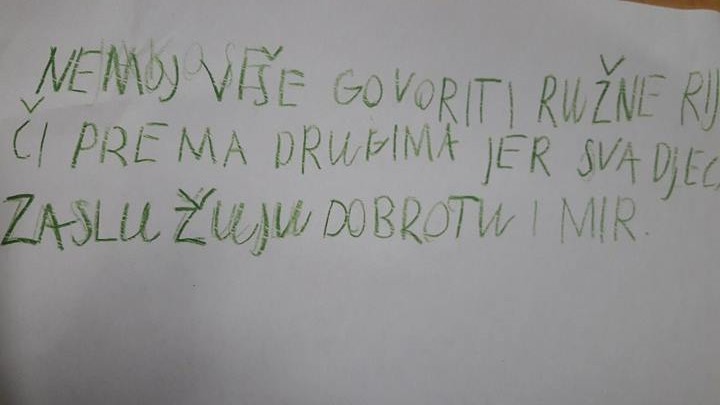 NEMOJ VIŠE GOVORITI RUŽNE RIJ
ČI PREMA DRUGIMA JER SVA DJEC
ZASLUŽUJU DOBROTU I MIR.